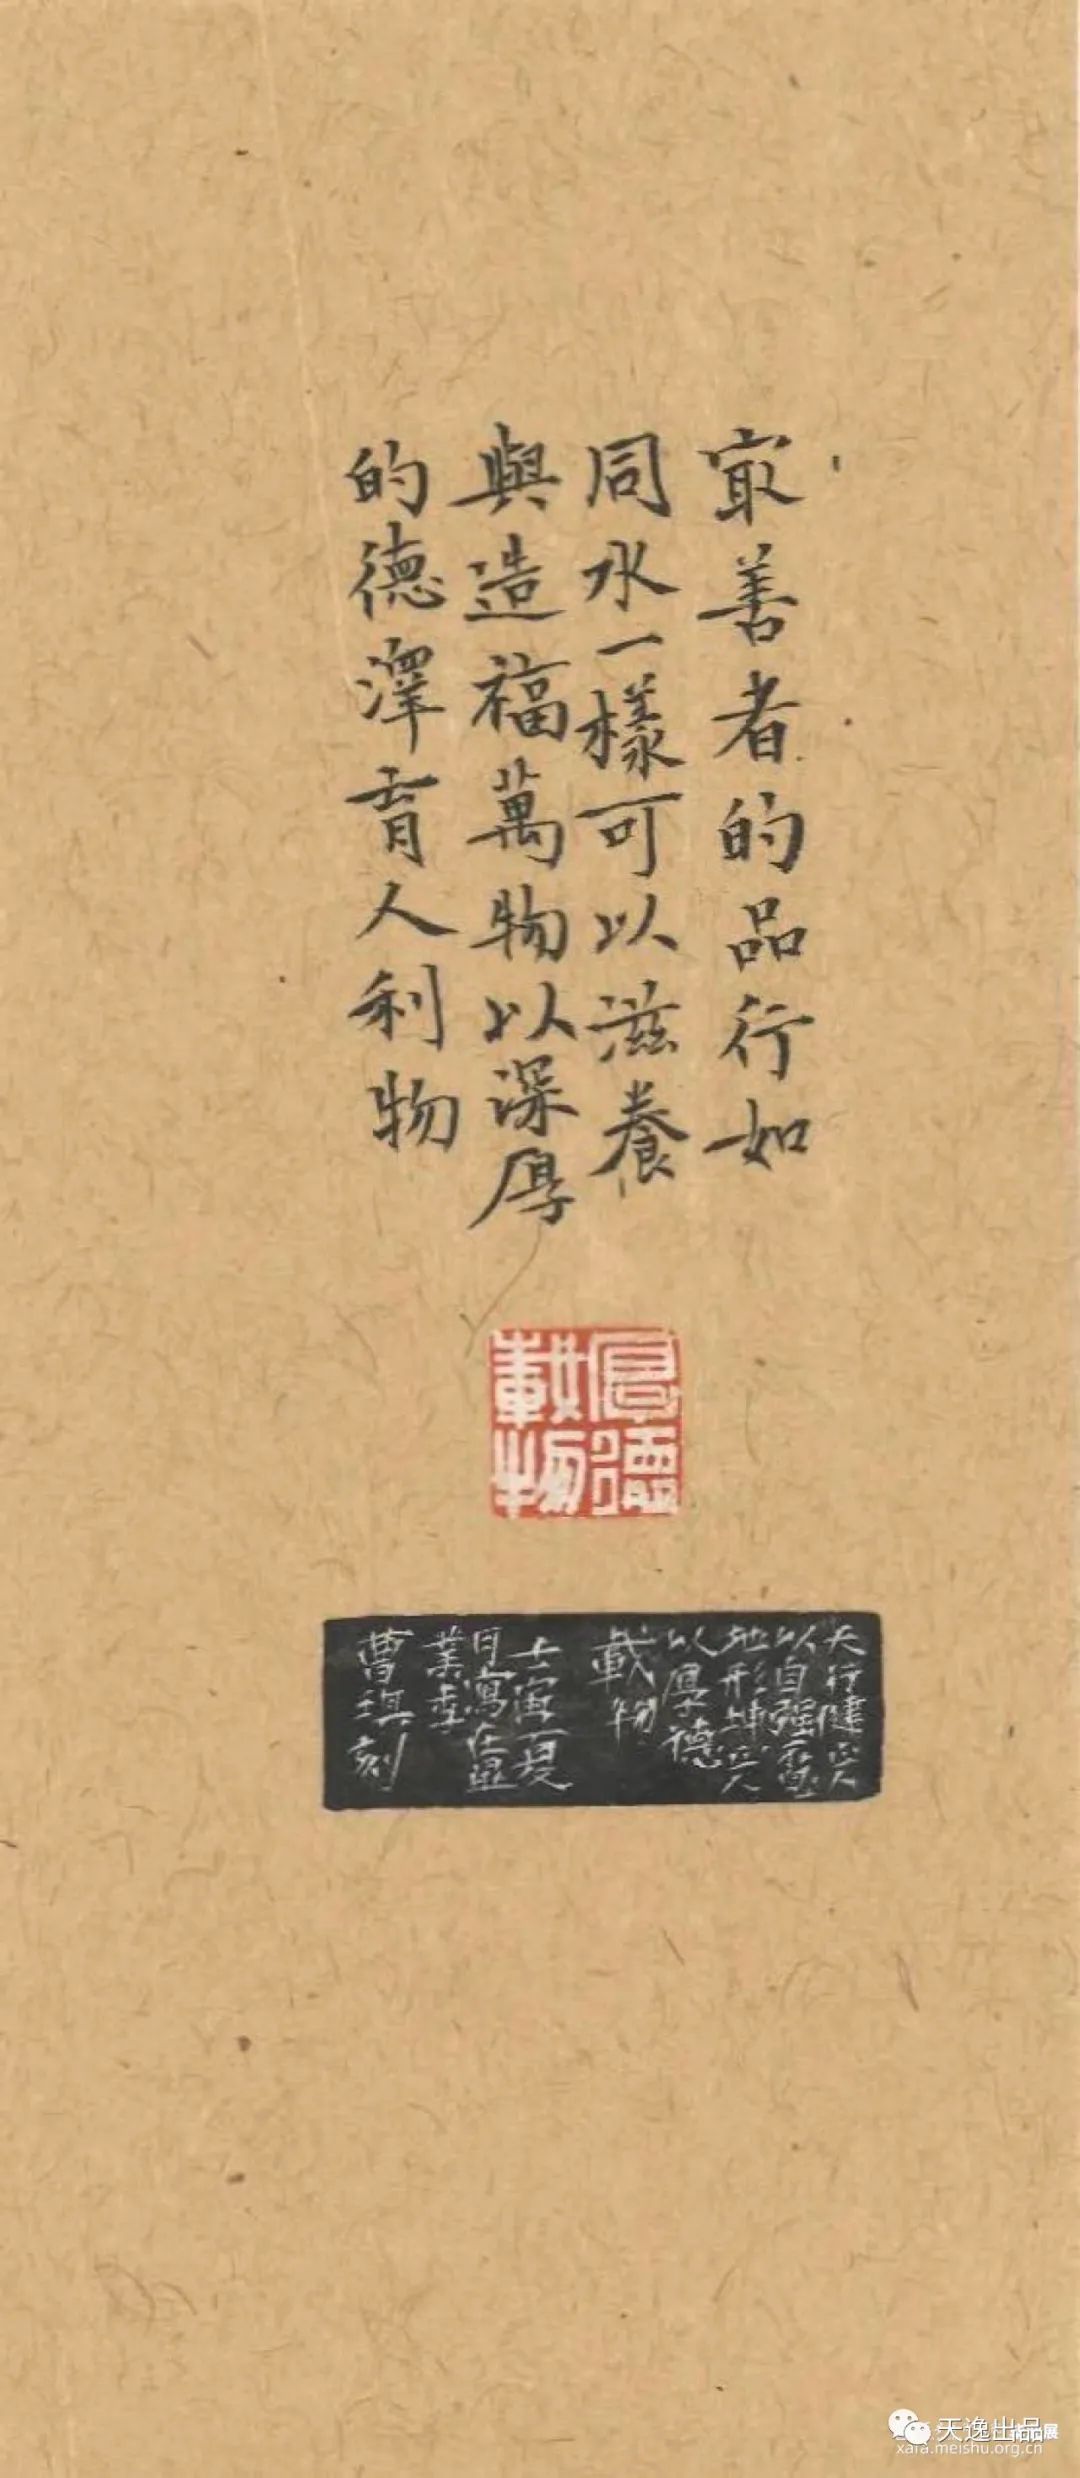 冣善者的品行如
同水一樣可以滋養
與造福萬物以深厚
的德澤育人利物
厚德
載物
天行健
以自强不息
地形坤
以厚德
載物
壬寅夏
月寫在
曹琪刻
天逸出品
xafa.meishu.org.cn